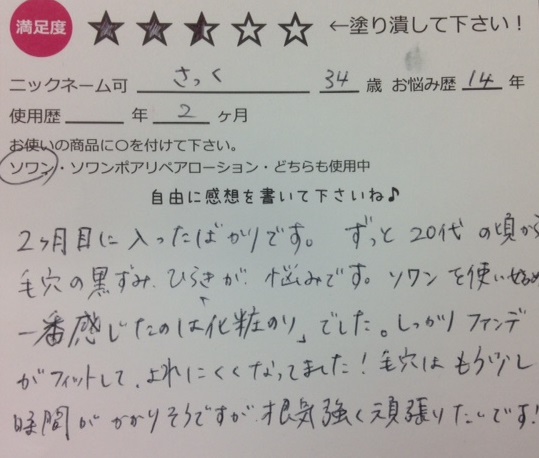 満足度 ★★★☆☆ ←塗り潰して下さい!
ニックネーム可 さっく 34 歳 お悩み歴 14 年
使用歴 年 2 ヶ月
お使いの商品に○を付けて下さい。
ソワン・ソワンポアリペアローション・どちらも使用中
自由に感想を書いて下さいね♪
2ヶ月目に入ったばかりです。 ずっと 20代 の頃から
毛穴の黒ずみ、ひらきが 悩みです。 ソワン を使い始め
一番感じたのは「化粧のり」でした。しっかり ファンデ
がフィットして、よれにくくなってました! 毛穴は もう少し
時間が かかりそうですが、根気強く頑張りたいです!